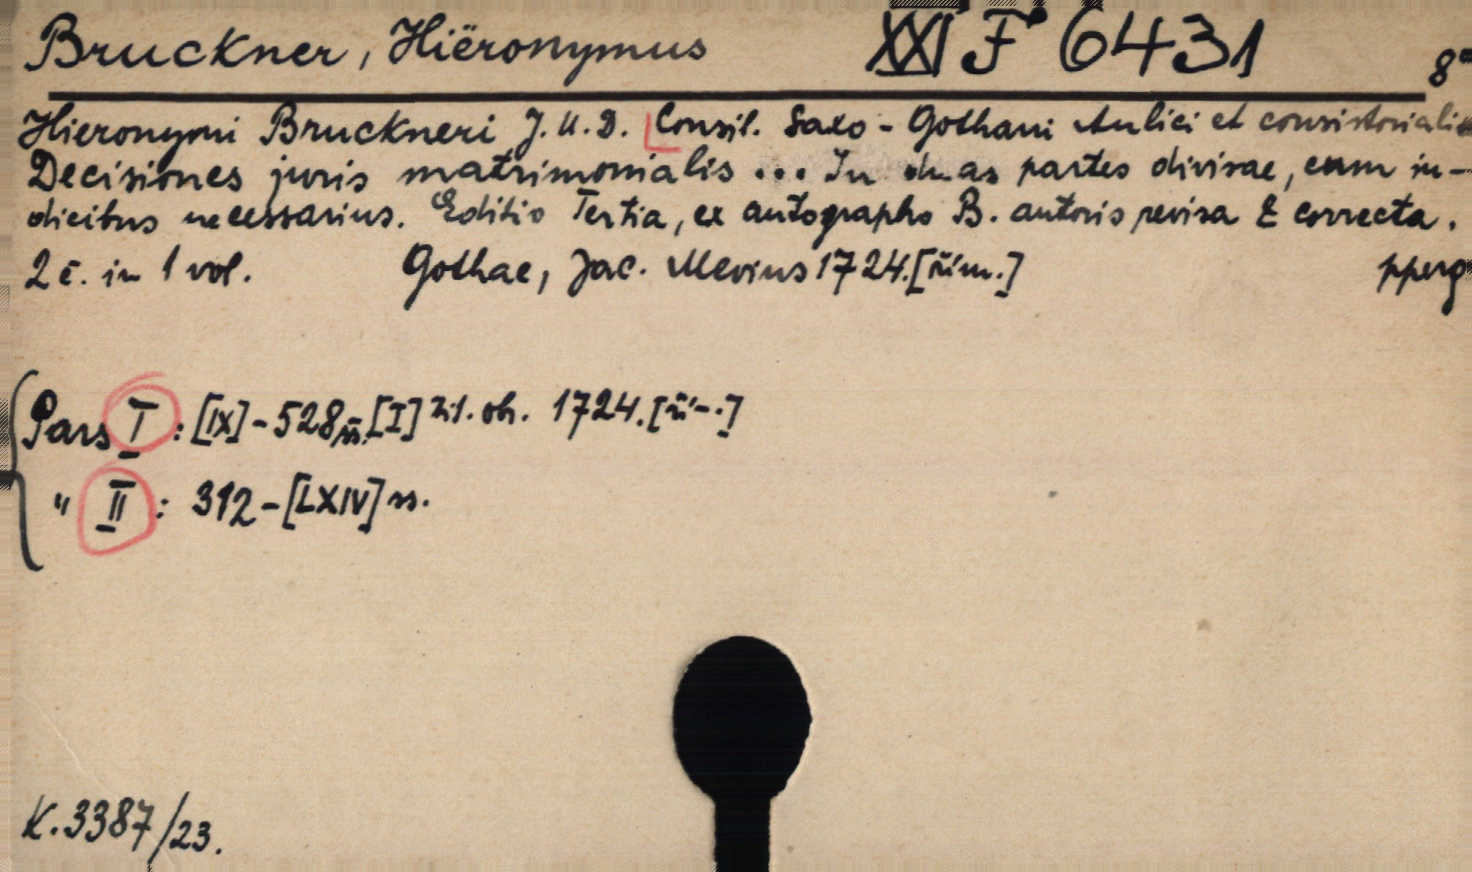 Bruckner, Hiëronymus XXI F 6431 8°
Hieronymi Bruckneri J. U. D. Consil. Saxo-Gothani Aulici et consistorialis
Decisiones juris matrimonialis ... In duas partes divisae, cum in-
dicibus necessarius. Editio Tertia, ex autographo B. autoris revisa & correcta.
2 č. in 1 vol. Gothae, Jac. Mevius 1724. [řím.] pperg
Pars I: [IX]-528 ss. [I] zit. ob. 1724. [ří-.]
" II: 312-[LXIV] ss.
K. 3387/23.